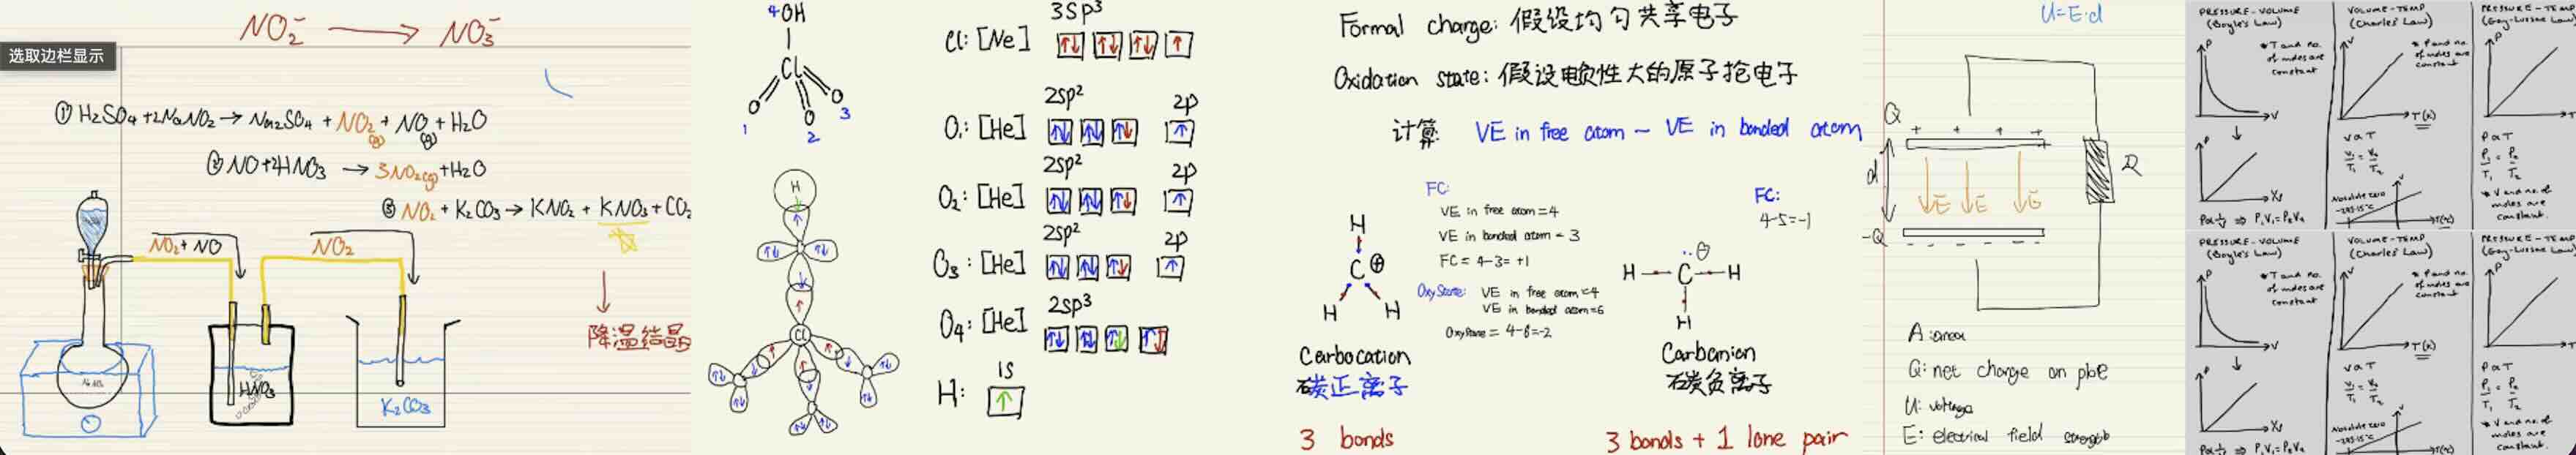 NO₂⁻ → NO₃⁻
选取边栏显示
① H₂SO₄ + 2NaNO₂ → Na₂SO₄ + NO₂(g) + NO(g) + H₂O
② NO + 2HNO₃ → 3NO₂(g) + H₂O
③ NO₂ + K₂CO₃ → KNO₂ + KNO₃ + CO₂
NO₂ + NO
NO₂
HNO₃
K₂CO₃
降温结晶
4 OH
Cl
O O O
1 2 3
H
Cl
3sp³
Cl: [Ne]
2sp² 2p
O₁: [He]
2sp² 2p
O₂: [He]
2sp² 2p
O₃: [He]
2sp³
O₄: [He]
1s
H:
Formal charge: 假设均匀共享电子
Oxidation state: 假设电负性大的原子抢电子
计算: VE in free atom - VE in bonded atom
FC:
VE in free atom = 4
VE in bonded atom = 3
FC = 4-3 = +1
Oxy State: VE in free atom = 4
VE in bonded atom = 6
Oxy State = 4-6 = -2
H
C ⊕
H H
Carbocation
碳正离子
3 bonds
FC:
4-5=-1
H C H
⊖
H
Carbanion
碳负离子
3 bonds + 1 lone pair
U=E·d
Q
+ + + +
d
E E E
-Q
R
A: area
Q: net charge on
U: voltage
E: electrical field
PRESSURE-VOLUME
(Boyle's Law)
P
* T and no.
of moles are
constant
V
P
⇒ P₁V₁=P₂V₂
VOLUME-TEMP
(Charles' Law)
V
* P and no.
of moles are
constant
T(K)
V α T
V₁/T₁ = V₂/T₂
Absolute zero
-273.15°C
T(°C)
PRESSURE-TEMP
(Gay-Lussac Law)
P
P α T
P₁/T₁ = P₂/T₂
* V and no. of
moles are
constant.
PRESSURE-VOLUME
(Boyle's Law)
P
* T and no.
of moles are
constant
V
P
⇒ P₁V₁=P₂V₂
VOLUME-TEMP
(Charles' Law)
V
* P and no.
of moles are
constant
T(K)
V α T
V₁/T₁ = V₂/T₂
Absolute zero
-273.15°C
T(°C)
PRESSURE-TEMP
(Gay-Lussac Law)
P
P α T
P₁/T₁ = P₂/T₂
* V and no. of
moles are
constant.